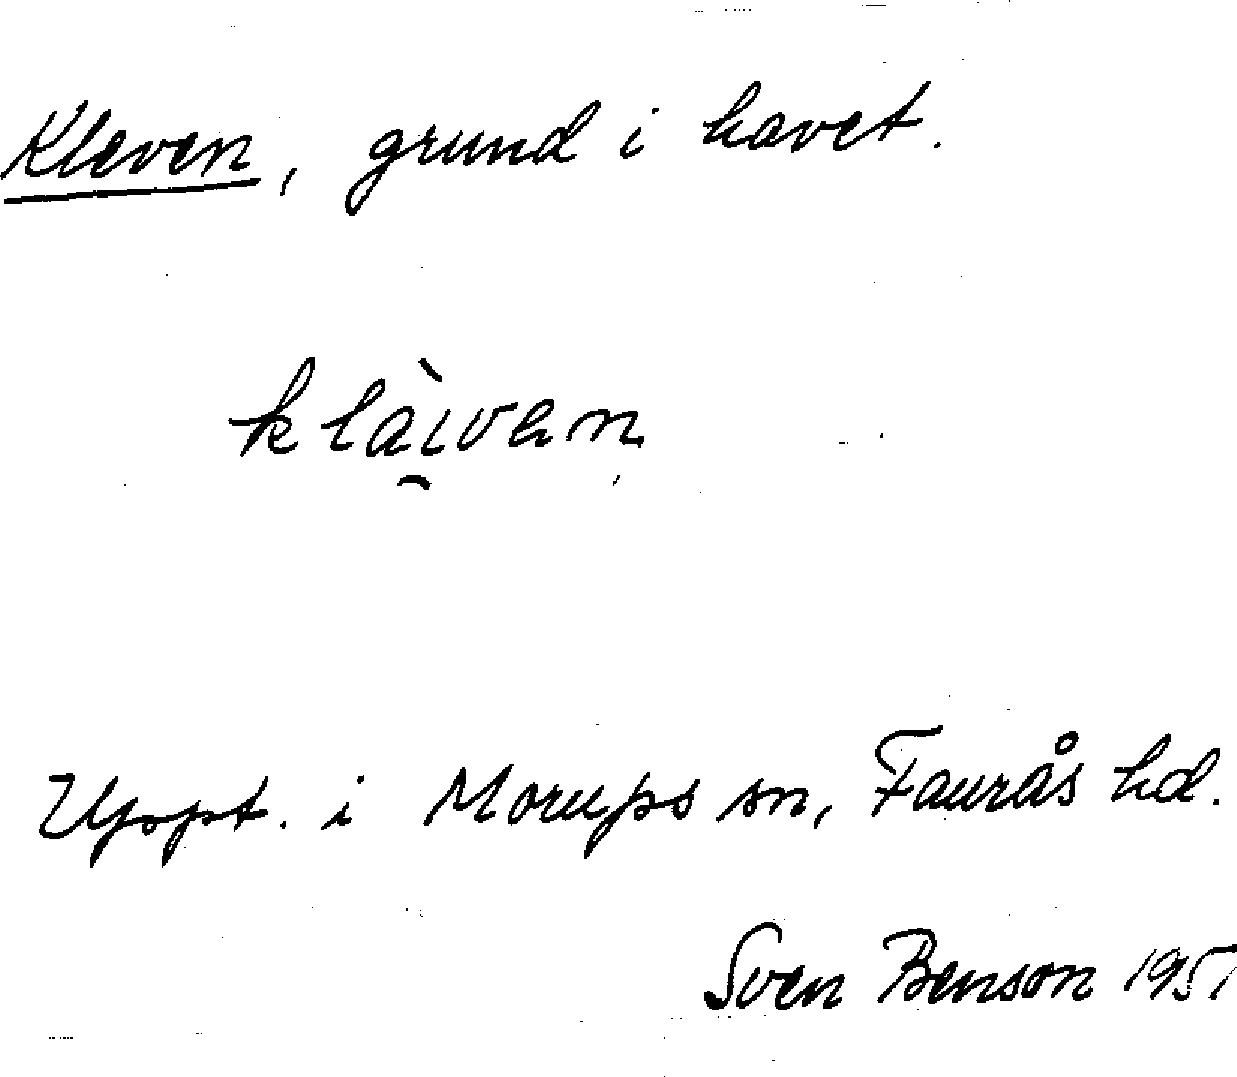 Kleven, grund i havet.
klàivən
Uppt. i Morups sn, Faurås hd.
Sven Benson 1951